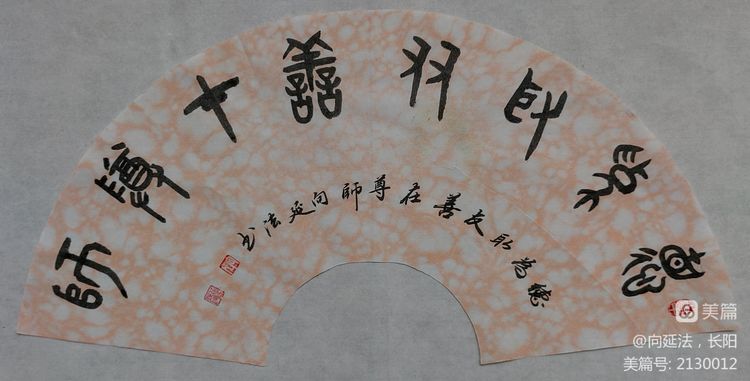 德為取友善在尊師
德為取友善在尊師向延法书
美篇
@向延法，长阳
美篇号: 2130012